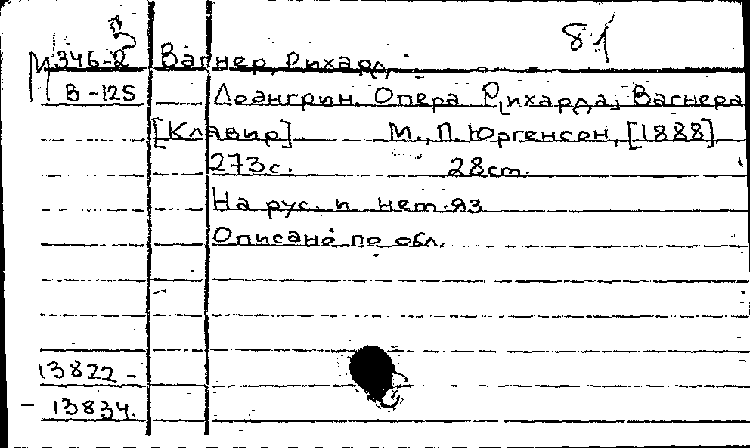 3 81
М346-2 Вагнер, Рихард.
В-125 Лоэнгрин. Опера Р[ихарда] Вагнера
[Клавир] М., П. Юргенсон, [1888]
273с. 28см.
На рус. и нем. яз.
Описано по обл.
13822 -
- 13834.